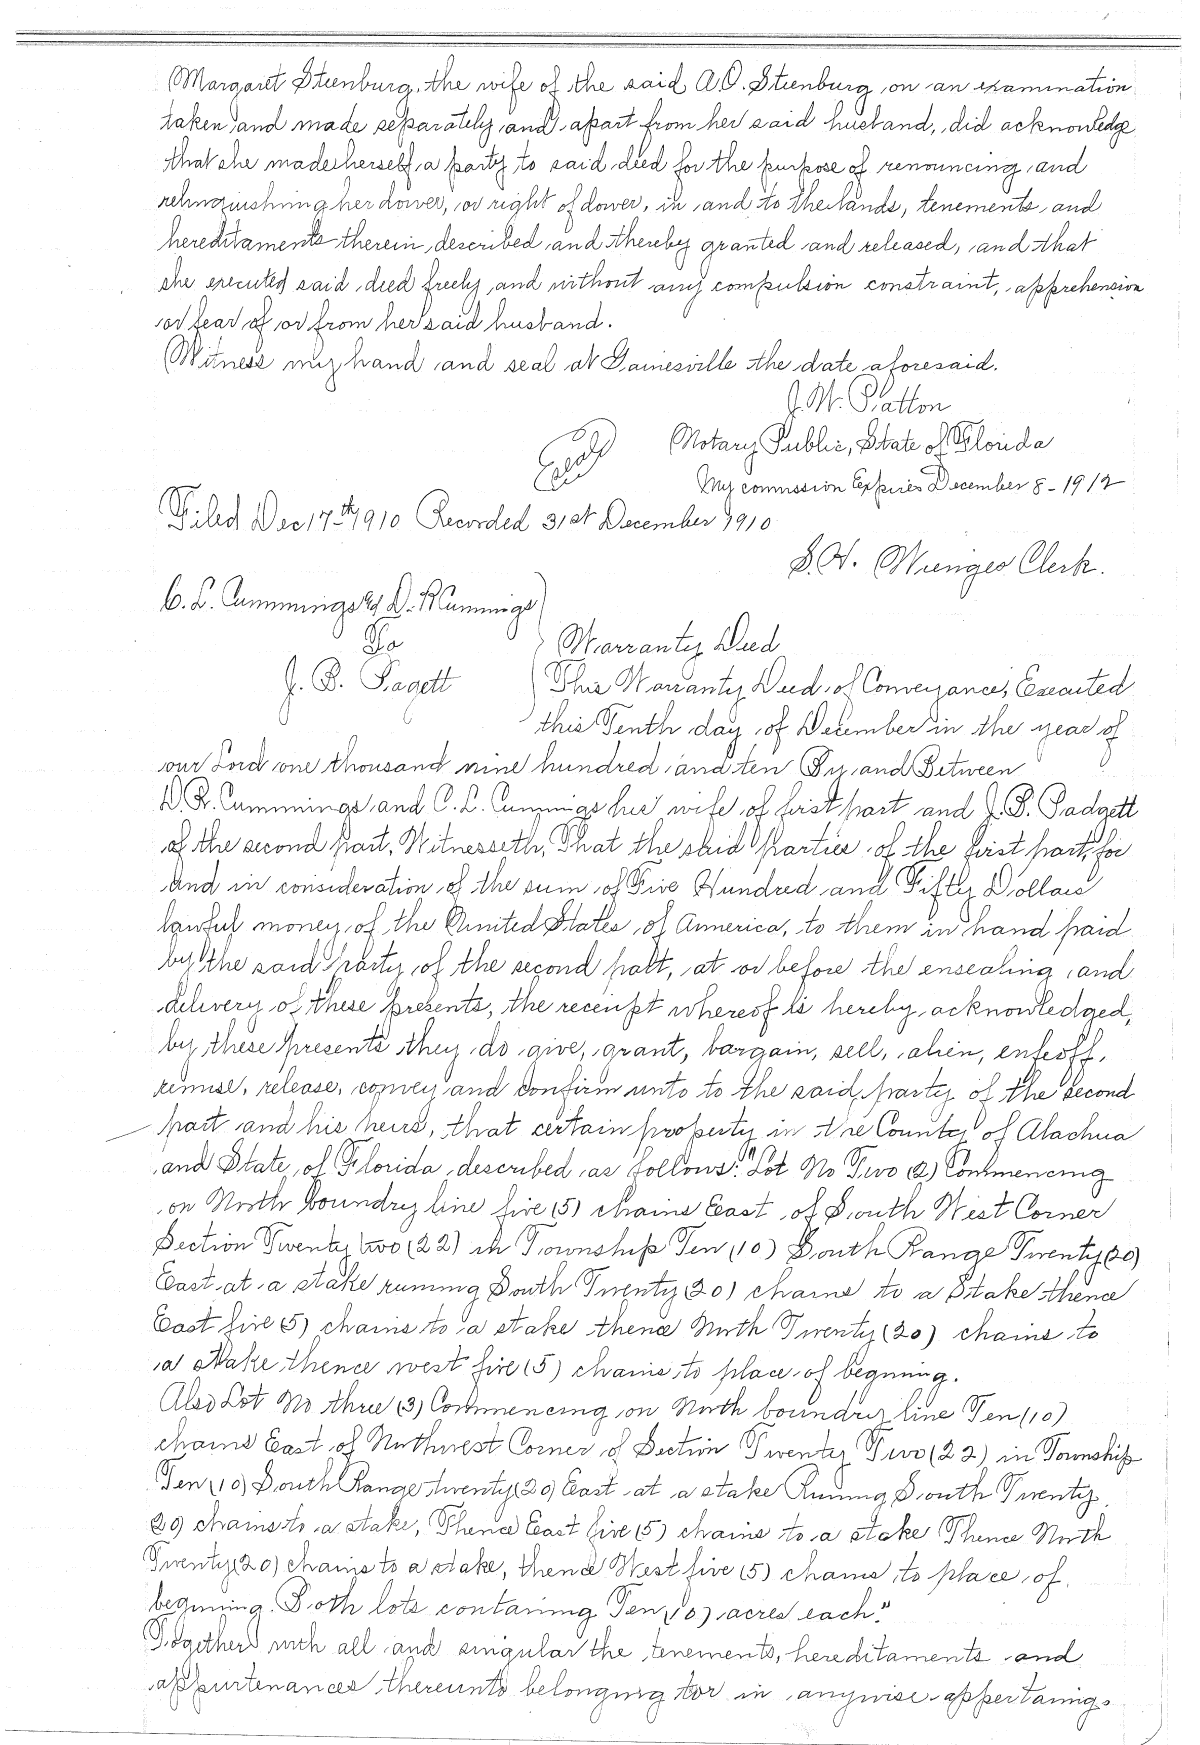 Margaret Steenburg, the wife of the said A.O. Steenburg, on an examination
taken and made separately and apart from her said husband, did acknowledge
that she made herself a party to said deed for the purpose of renouncing and
relinquishing her dower, or right of dower, in and to the lands, tenements and
hereditaments therein described and thereby granted and released, and that
she executed said deed freely and without any compulsion constraint, apprehension
or fear of or from her said husband.
Witness my hand and seal at Gainesville the date aforesaid.
J. W. Patton
(Seal) Notary Public, State of Florida
My commssion Expires December 8 - 1912
Filed Dec 17th 1910 Recorded 31st December 1910
S. H. Wienges Clerk.
C. L. Cummings & D. R. Cummings
To
Warranty Deed
J. B. Pagett This Warranty Deed of Conveyance, Executed
this Tenth day of December in the year of
our Lord one thousand nine hundred and ten By and Between
D. R. Cummings and C. L. Cummings his wife of first part and J. B. Padgett
of the second part, Witnesseth, That the said parties of the first part, for
and in consideration of the sum of Five Hundred and Fifty Dollars
lawful money of the United States of America, to them in hand paid
by the said party of the second part, at or before the ensealing and
delivery of these presents, the receipt whereof is hereby acknowledged,
by these presents they do give, grant, bargain, sell, alien, enfeoff,
remise, release, convey and confirm unto to the said party of the second
part and his heirs, that certain property in the County of Alachua
and State of Florida described as follows: "Lot No Two (2) Commencing
on North boundry line five (5) chains East of South West Corner
Section Twenty two (22) in Township Ten (10) South Range Twenty (20)
East at a stake runing South Twenty (20) chains to a Stake thence
East five (5) chains to a stake thence North Twenty (20) chains to
a stake thence west five (5) chains to place of begnning.
Also Lot No three (3) Commencing on North boundry line Ten (10)
chains East of Northwest Corner of Section Twenty Two (22) in Township
Ten (10) South Range twenty (20) East at a stake Runing South Twenty
20) chains to a stake, Thence East five (5) chains to a stake Thence North
Twenty (20) chains to a stake, thence West five (5) chains to place of
begnning. Both lots containing Ten (10) acres each."
Together with all and singular the tenements, hereditaments and
appurtenances thereunto belonging or in anywise appertaining.